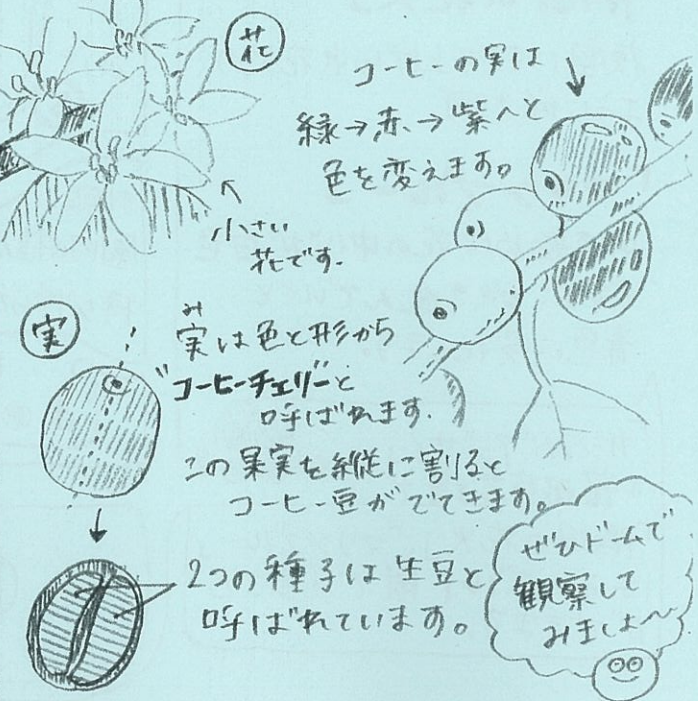 花
コーヒーの実は
緑→赤→紫へと
色を変えます。
小さい
花です.
実
み
実は色と形から
"コーヒーチェリー"と
呼ばれます.
この果実を縦に割ると
コーヒー豆がでてきます。
2つの種子は生豆と
呼ばれています。
ぜひドームで
観察して
みましょ〜